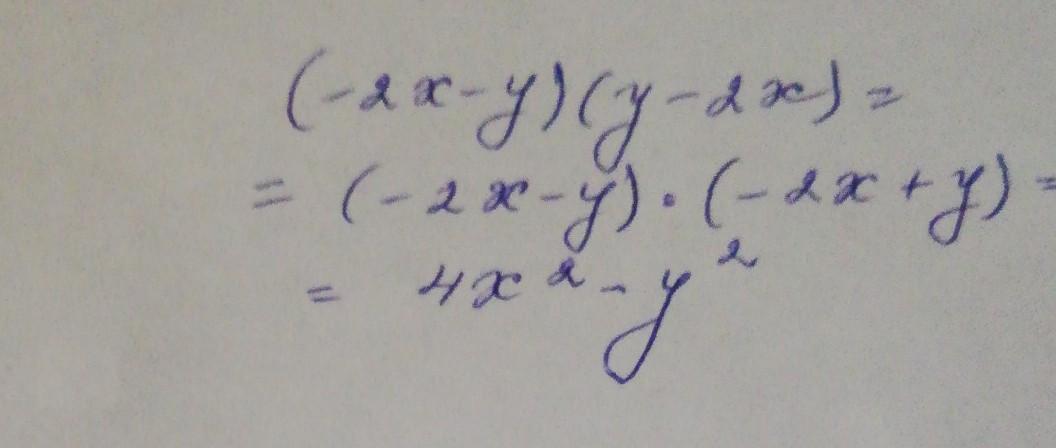 (-2x-y)(y-2x)=
= (-2x-y)·(-2x+y)=
= 4x²-y²